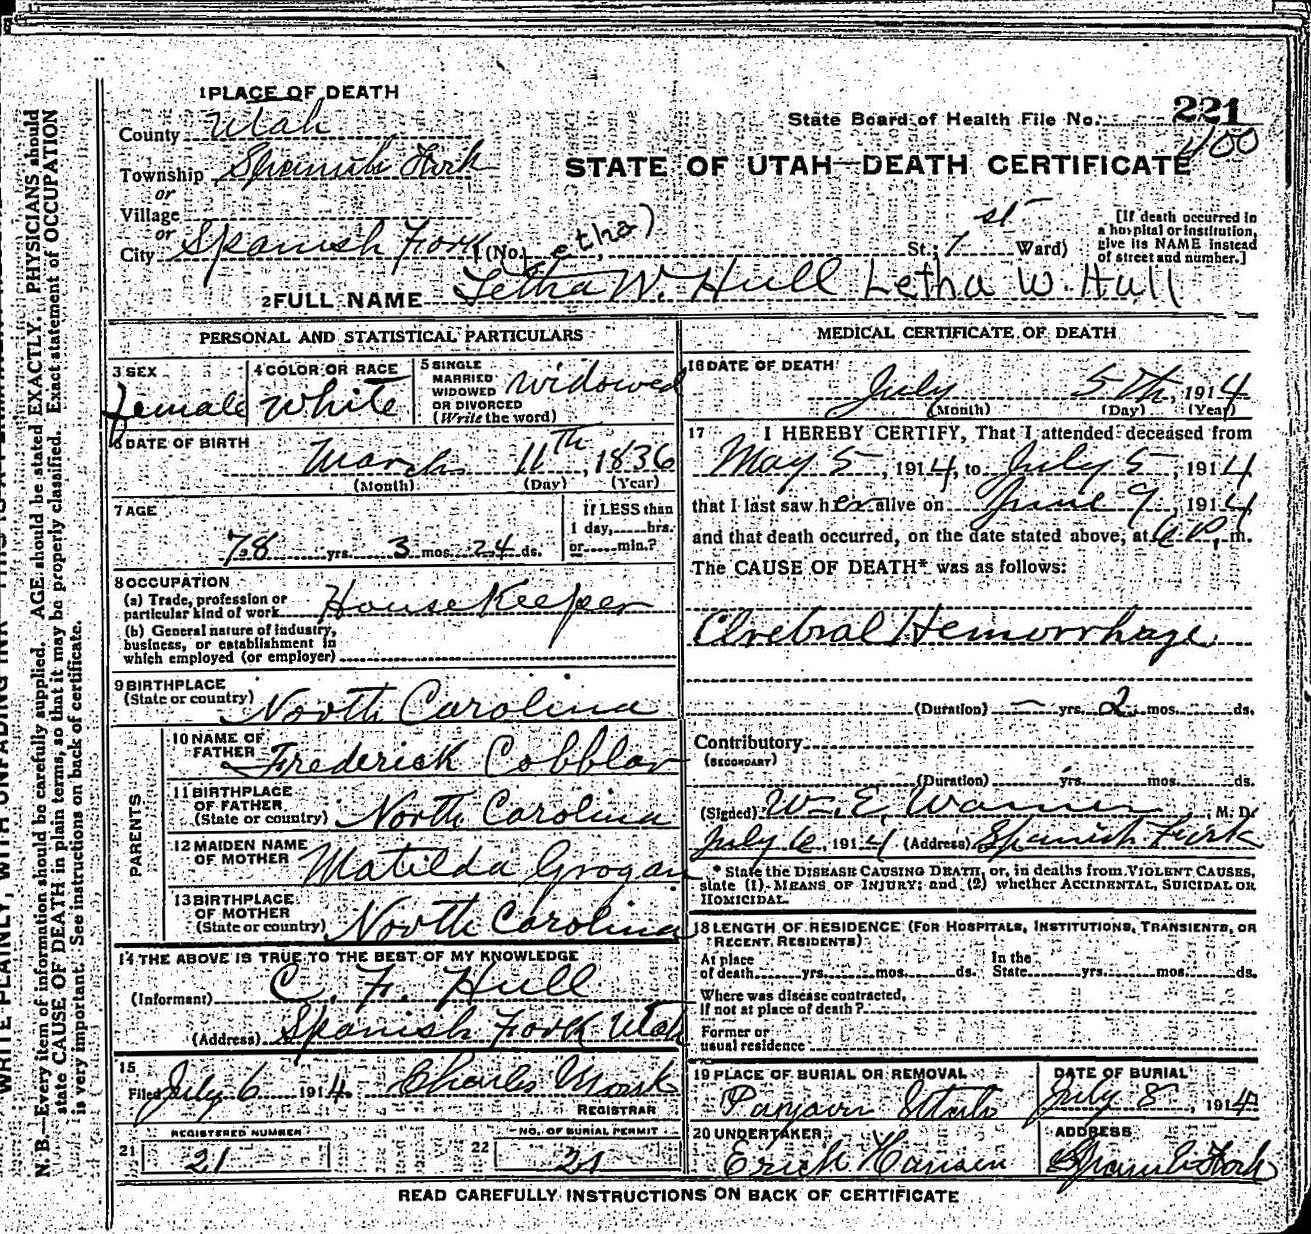 1 PLACE OF DEATH
County Utah
Township Spanish Fork
or
Village
or
City Spanish Fork (No. St.; 1st Ward)
(etha)
State Board of Health File No. 221
400
STATE OF UTAH—DEATH CERTIFICATE
[If death occurred in
a hospital or institution,
give its NAME instead
of street and number.]
2 FULL NAME Letha W. Hull Letha W. Hull
PERSONAL AND STATISTICAL PARTICULARS
3 SEX
female
4 COLOR OR RACE
White
5 SINGLE
MARRIED
WIDOWED
OR DIVORCED
(Write the word)
widowed
6 DATE OF BIRTH
March 11th, 1836
(Month) (Day) (Year)
7 AGE
78 yrs. 3 mos. 24 ds.
If LESS than
1 day, hrs.
or min.?
8 OCCUPATION
(a) Trade, profession or
particular kind of work House Keeper
(b) General nature of industry,
business, or establishment in
which employed (or employer)
9 BIRTHPLACE
(State or country) North Carolina
PARENTS
10 NAME OF
FATHER Frederick Cobblar
11 BIRTHPLACE
OF FATHER
(State or country) North Carolina
12 MAIDEN NAME
OF MOTHER Matilda Grogan
13 BIRTHPLACE
OF MOTHER
(State or country) North Carolina
14 THE ABOVE IS TRUE TO THE BEST OF MY KNOWLEDGE
(Informant) C. F. Hull
(Address) Spanish Fork Utah
15
Filed July 6 1914 Charles Monk
REGISTRAR
REGISTERED NUMBER
21 21
NO. OF BURIAL PERMIT
22 21
MEDICAL CERTIFICATE OF DEATH
16 DATE OF DEATH
July 5th, 1914
(Month) (Day) (Year)
17 I HEREBY CERTIFY, That I attended deceased from
May 5, 1914, to July 5, 1914
that I last saw her alive on June 9, 1914
and that death occurred, on the date stated above, at m.
The CAUSE OF DEATH* was as follows:
Clrebral Hemorrhage
(Duration) — yrs. 2 mos. ds.
Contributory
(SECONDARY)
(Duration) yrs. mos. ds.
(Signed) W. E. Warner, M. D.
July 6, 1914 (Address) Spanish Fork
* State the DISEASE CAUSING DEATH, or, in deaths from VIOLENT CAUSES,
state (1) MEANS OF INJURY; and (2) whether ACCIDENTAL, SUICIDAL OR
HOMICIDAL.
18 LENGTH OF RESIDENCE (FOR HOSPITALS, INSTITUTIONS, TRANSIENTS, OR
RECENT RESIDENTS)
At place
of death yrs. mos. ds.
In the
State yrs. mos. ds.
Where was disease contracted,
if not at place of death?
Former or
usual residence
19 PLACE OF BURIAL OR REMOVAL
Payson Utah
DATE OF BURIAL
July 8, 1914
20 UNDERTAKER
Erick Hansen
ADDRESS
Spanish Fork
READ CAREFULLY INSTRUCTIONS ON BACK OF CERTIFICATE
N. B.—Every item of information should be carefully supplied. AGE should be stated EXACTLY. PHYSICIANS should
state CAUSE OF DEATH in plain terms, so that it may be properly classified. Exact statement of OCCUPATION
is very important. See instructions on back of certificate.
WRITE PLAINLY, WITH UNFADING INK